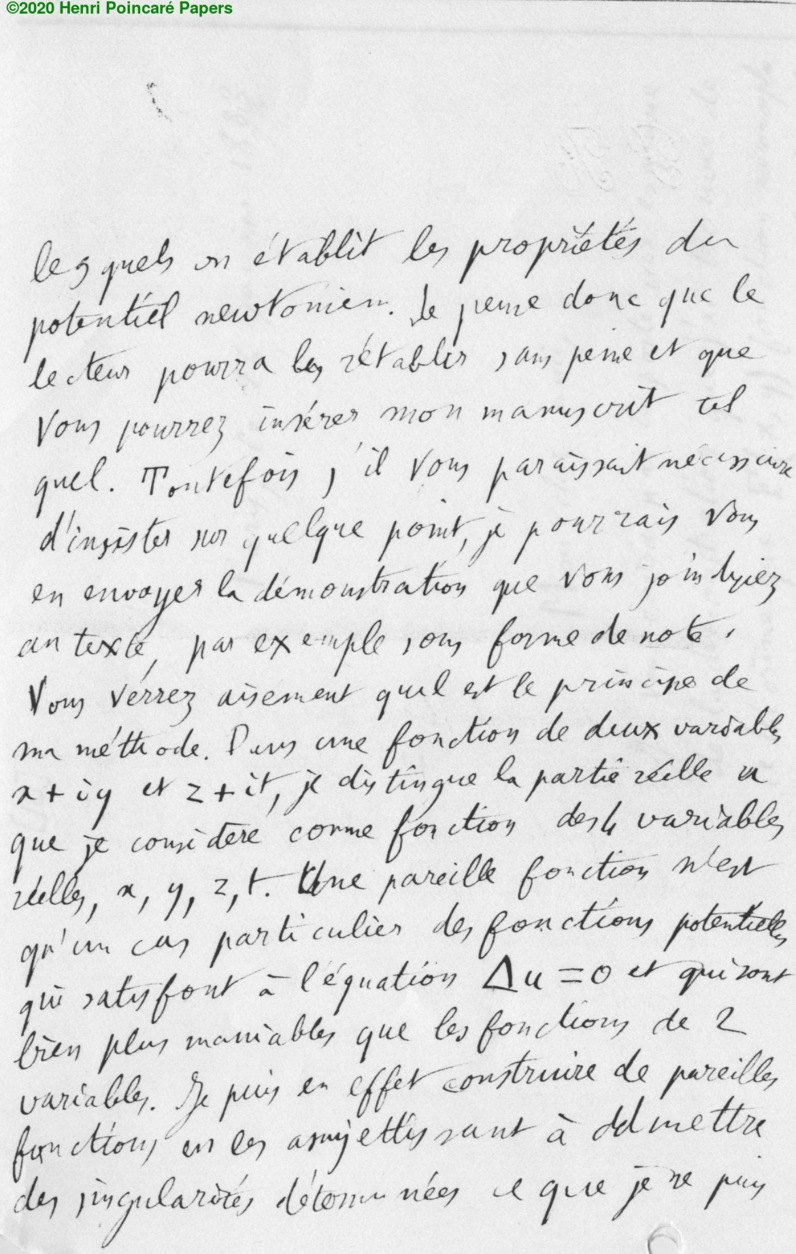 ©2020 Henri Poincaré Papers
lesquels on établit les propriétés du
potentiel newtonien. Je pense donc que le
lecteur pourra les rétablir sans peine et que
vous pourrez insérer mon manuscrit tel
quel. Toutefois s'il vous paraissait nécessaire
d'insister sur quelque point, je pourrais vous
en envoyer la démonstration que vous joindriez
au texte, par exemple sous forme de note.
Vous verrez aisement quel est le principe de
ma méthode. Dans une fonction de deux variables
x + iy et z + it, je distingue la partie réelle u
que je considère comme fonction des 4 variables
réelles, x, y, z, t. Une pareille fonction n'est
qu'un cas particulier des fonctions potentielles
qui satisfont à l'équation Δu = 0 et qui sont
bien plus maniables que les fonctions de 2
variables. Je puis en effet construire de pareilles
fonctions en les assujettissant à admettre
des singularités déterminées ce que je ne puis